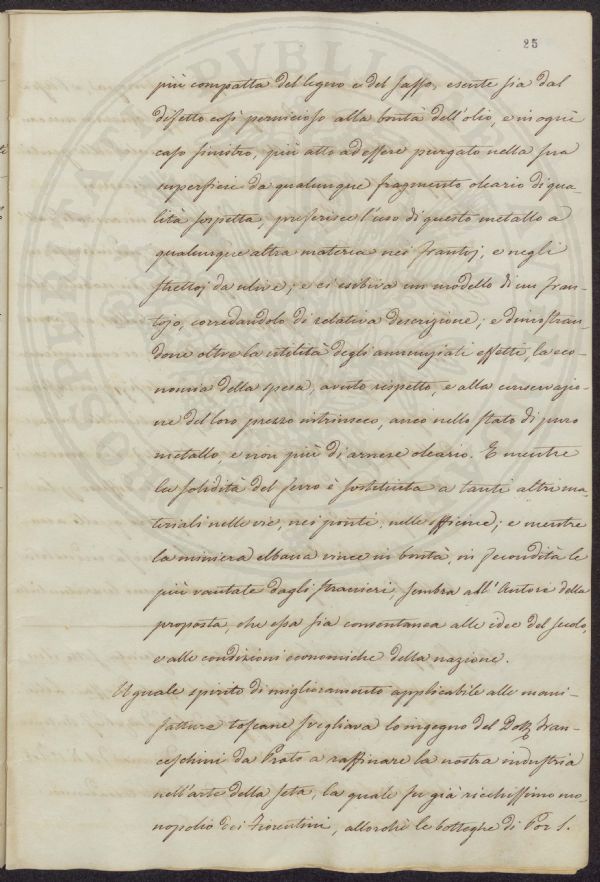 25
più compatta del legno e del sasso, esente sia dal
difetto così pernicioso alla bontà dell'olio, e in ogni
caso sinistro, più atto ad essere purgato nella sua
superficie da qualunque fragmento oleario di qua-
lità sospetta, preferisce l'uso di questo metallo a
qualunque altra materia nei frantoj, e negli
strettoj da ulive; e ci esibiva un modello di un fran-
tojo, corredandolo di relativa descrizione; e dimostran-
done oltre la utilità degli annunziati effetti, la eco-
nomia della spesa, avuto rispetto, e alla conservazio-
ne del loro prezzo intrinseco, anco nello stato di puro
metallo, e non più di arnese oleario. E mentre
la solidità del ferro è sostituita a tanti altri ma-
teriali nelle vie, nei ponti, nelle officine; e mentre
la miniera elbana vince in bontà, in fecondità le
più vantate dagli stranieri, sembra all'Autore della
proposta, che essa sia consentanea alle idee del secolo,
e alle condizioni economiche della nazione.
Uguale spirito di miglioramento applicabile alle mani-
fatture toscane svegliava lo ingegno del Dott. Fran-
ceschini da Prato a raffinare la nostra industria
nell'arte della seta, la quale fu già ricchissimo mo-
nopolio dei Fiorentini, allorchè le botteghe di Por S.